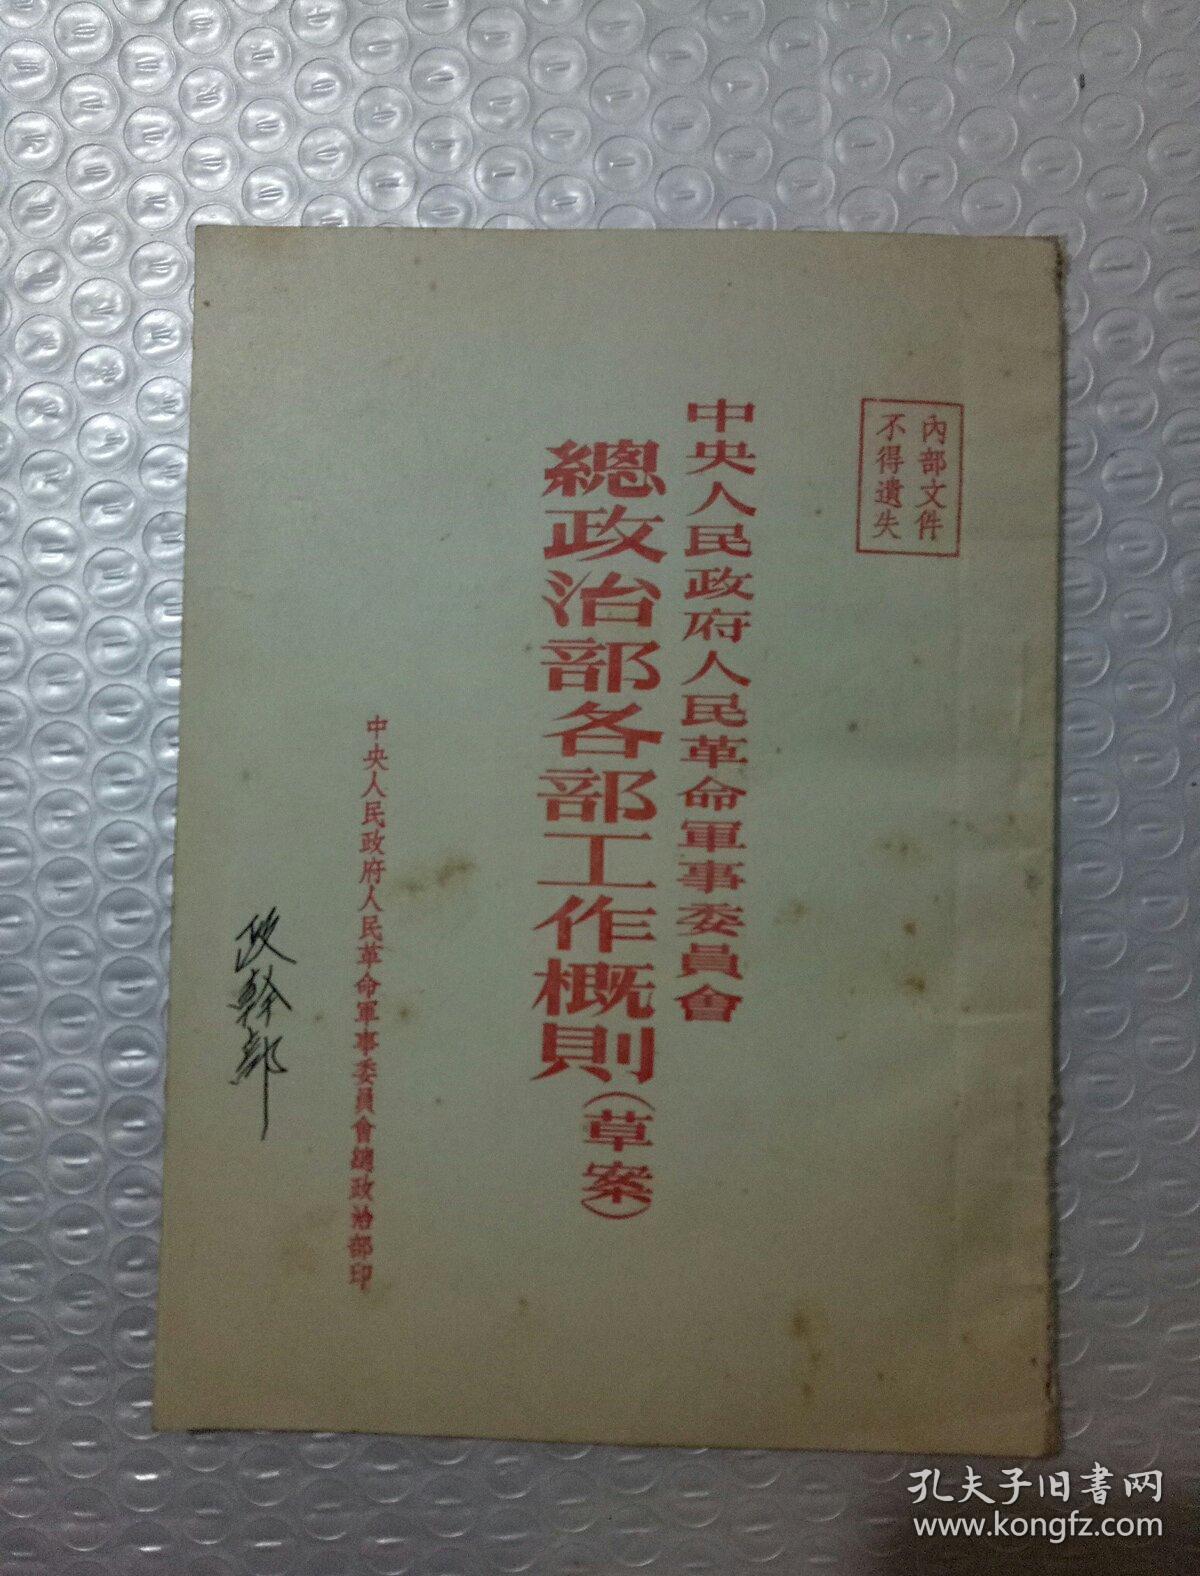 內部文件
不得遺失
中央人民政府人民革命軍事委員會
總政治部各部工作概則(草案)
中央人民政府人民革命軍事委員會總政治部印
政幹部
孔夫子旧書网
www.kongfz.com